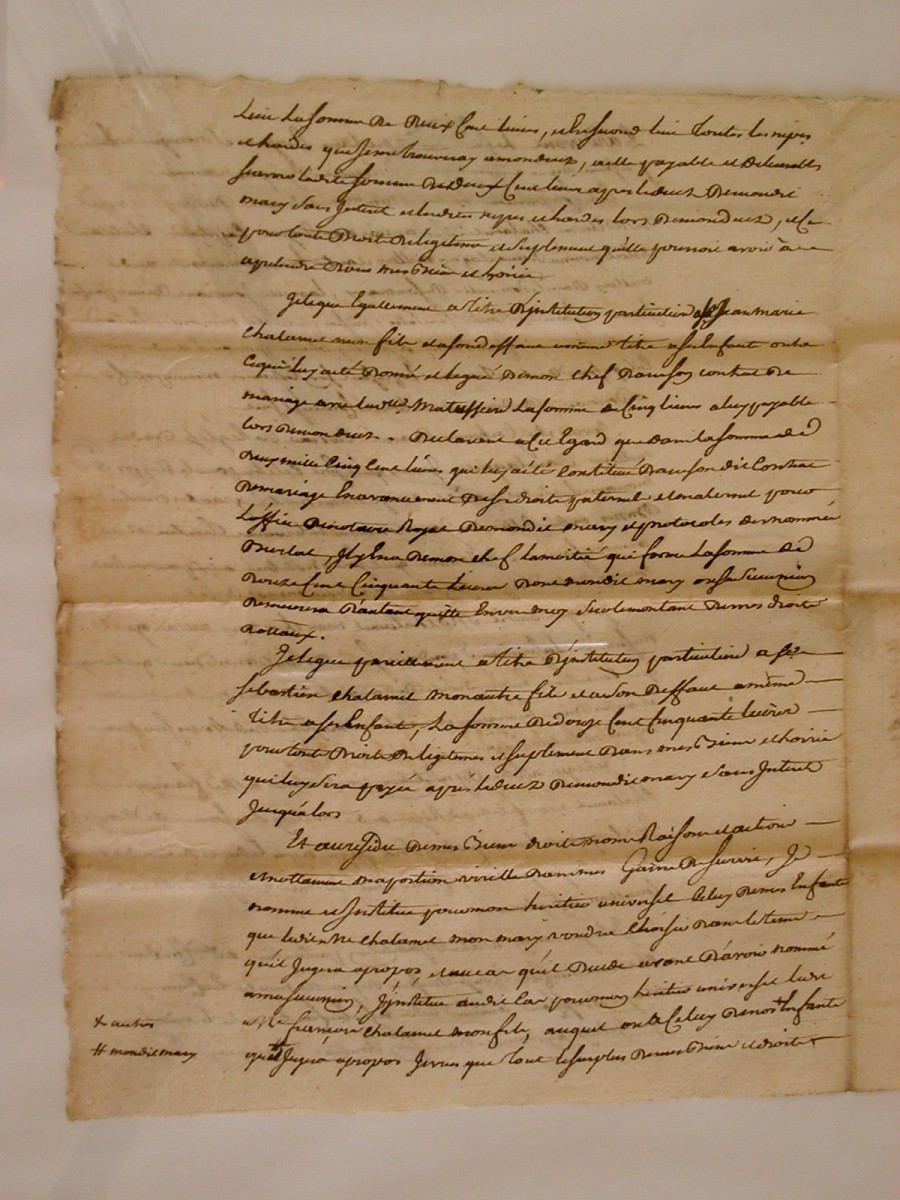 lieu la somme de deux cent livres, et en second lieu toutes les nipes
et hardes que se me trouveray a mon decez, a elle payable et delivrables
scavoir ladite somme de deux cent livres apres le decez de mondit
mary sans interet et lesdites nipes et hardes lors de mon decez, et ce
pour tout droit de legitime et suplement qu'elle pourroit avoir à
et pretendre dans mes biens et hoirie
Je legue egallement a titre d'institution particuliere à Jean marie
Chalamel mon fils et a son deffaut a meme titre a ses Enfants outre
ce qui luy a eté donné et legué de mon chef dans son contrat de
mariage avec la d.lle la somme de Cinq livres a luy payable
lors de mon decez. Declarant a cet Egard que dans la somme de
deux mille Cinq Cent livres qui luy a eté Constitué dans son dit Contrat
de mariage En avancement de ses droits paternel et maternel pour
l'office de notaire Royal de mondit mary et protocoles de nommée
il y En a de mon chef la moitié qui forme la somme de
douze Cent Cinquante livres dont mondit mary ou sa succession
demeurera d'autant quitte Envers moy sur le montant de mes droits
dottaux.
Je legue pareillement a titre d'institution particuliere a
sebastien chalamel mon autre fils et a son deffaut a même
titre a ses Enfants, La somme de douze Cent Cinquante livres
pour tout droits de legitimes et suplement dans mes biens et hoirie
qui luy sera payée après le decez de mondit mary et sans Interet
Jusqu'alors
Et au residu de mes biens droits noms Raisons et actions
et nottament ma portion virille dans mes Gains de survie, Je
nomme et Institue pour mon heritier universel Celuy de mes Enfants
que ledit M.e chalamel mon mary voudra choisir dans le tems
qu'il Jugera apropos, et au cas qu'il decede avant d'avoir nommé
J'institue audit Cas pour mon heritier universel ledit
M.e françois chalamel mon fils, auquel ou a Celuy de nos + Enfants
qu'il # Jugera apropos Je veux que tout le surplus de mes biens et droits
+ autres
# mondit mary